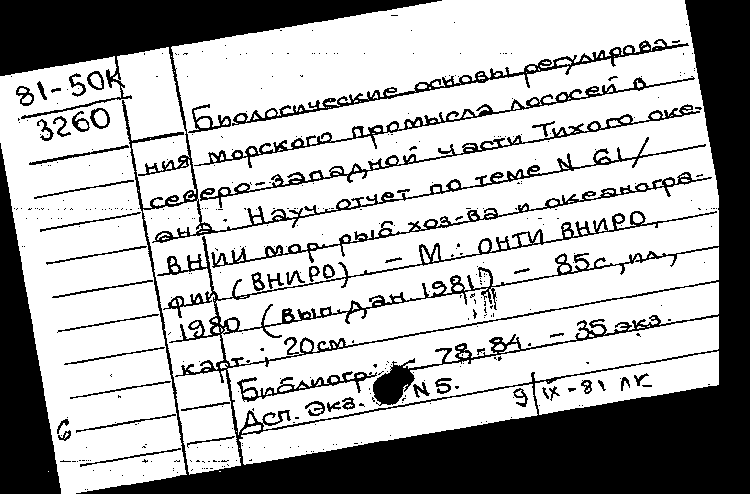 81-50К
3260
Биологические основы регулирова-
ния морского промысла лососей в
северо-западной части Тихого оке-
ана: Науч. отчет по теме N 61/
ВНИИ мор. рыб. хоз-ва и океаногра-
фии (ВНИРО). - М.: ОНТИ ВНИРО,
1980 (вып. дан. 1981). - 85с., ил.,
карт.; 20см.
Библиогр.: с. 78-84. - 35 экз.
Дсп. Экз. N 5.
6
9/IX-81 ЛК